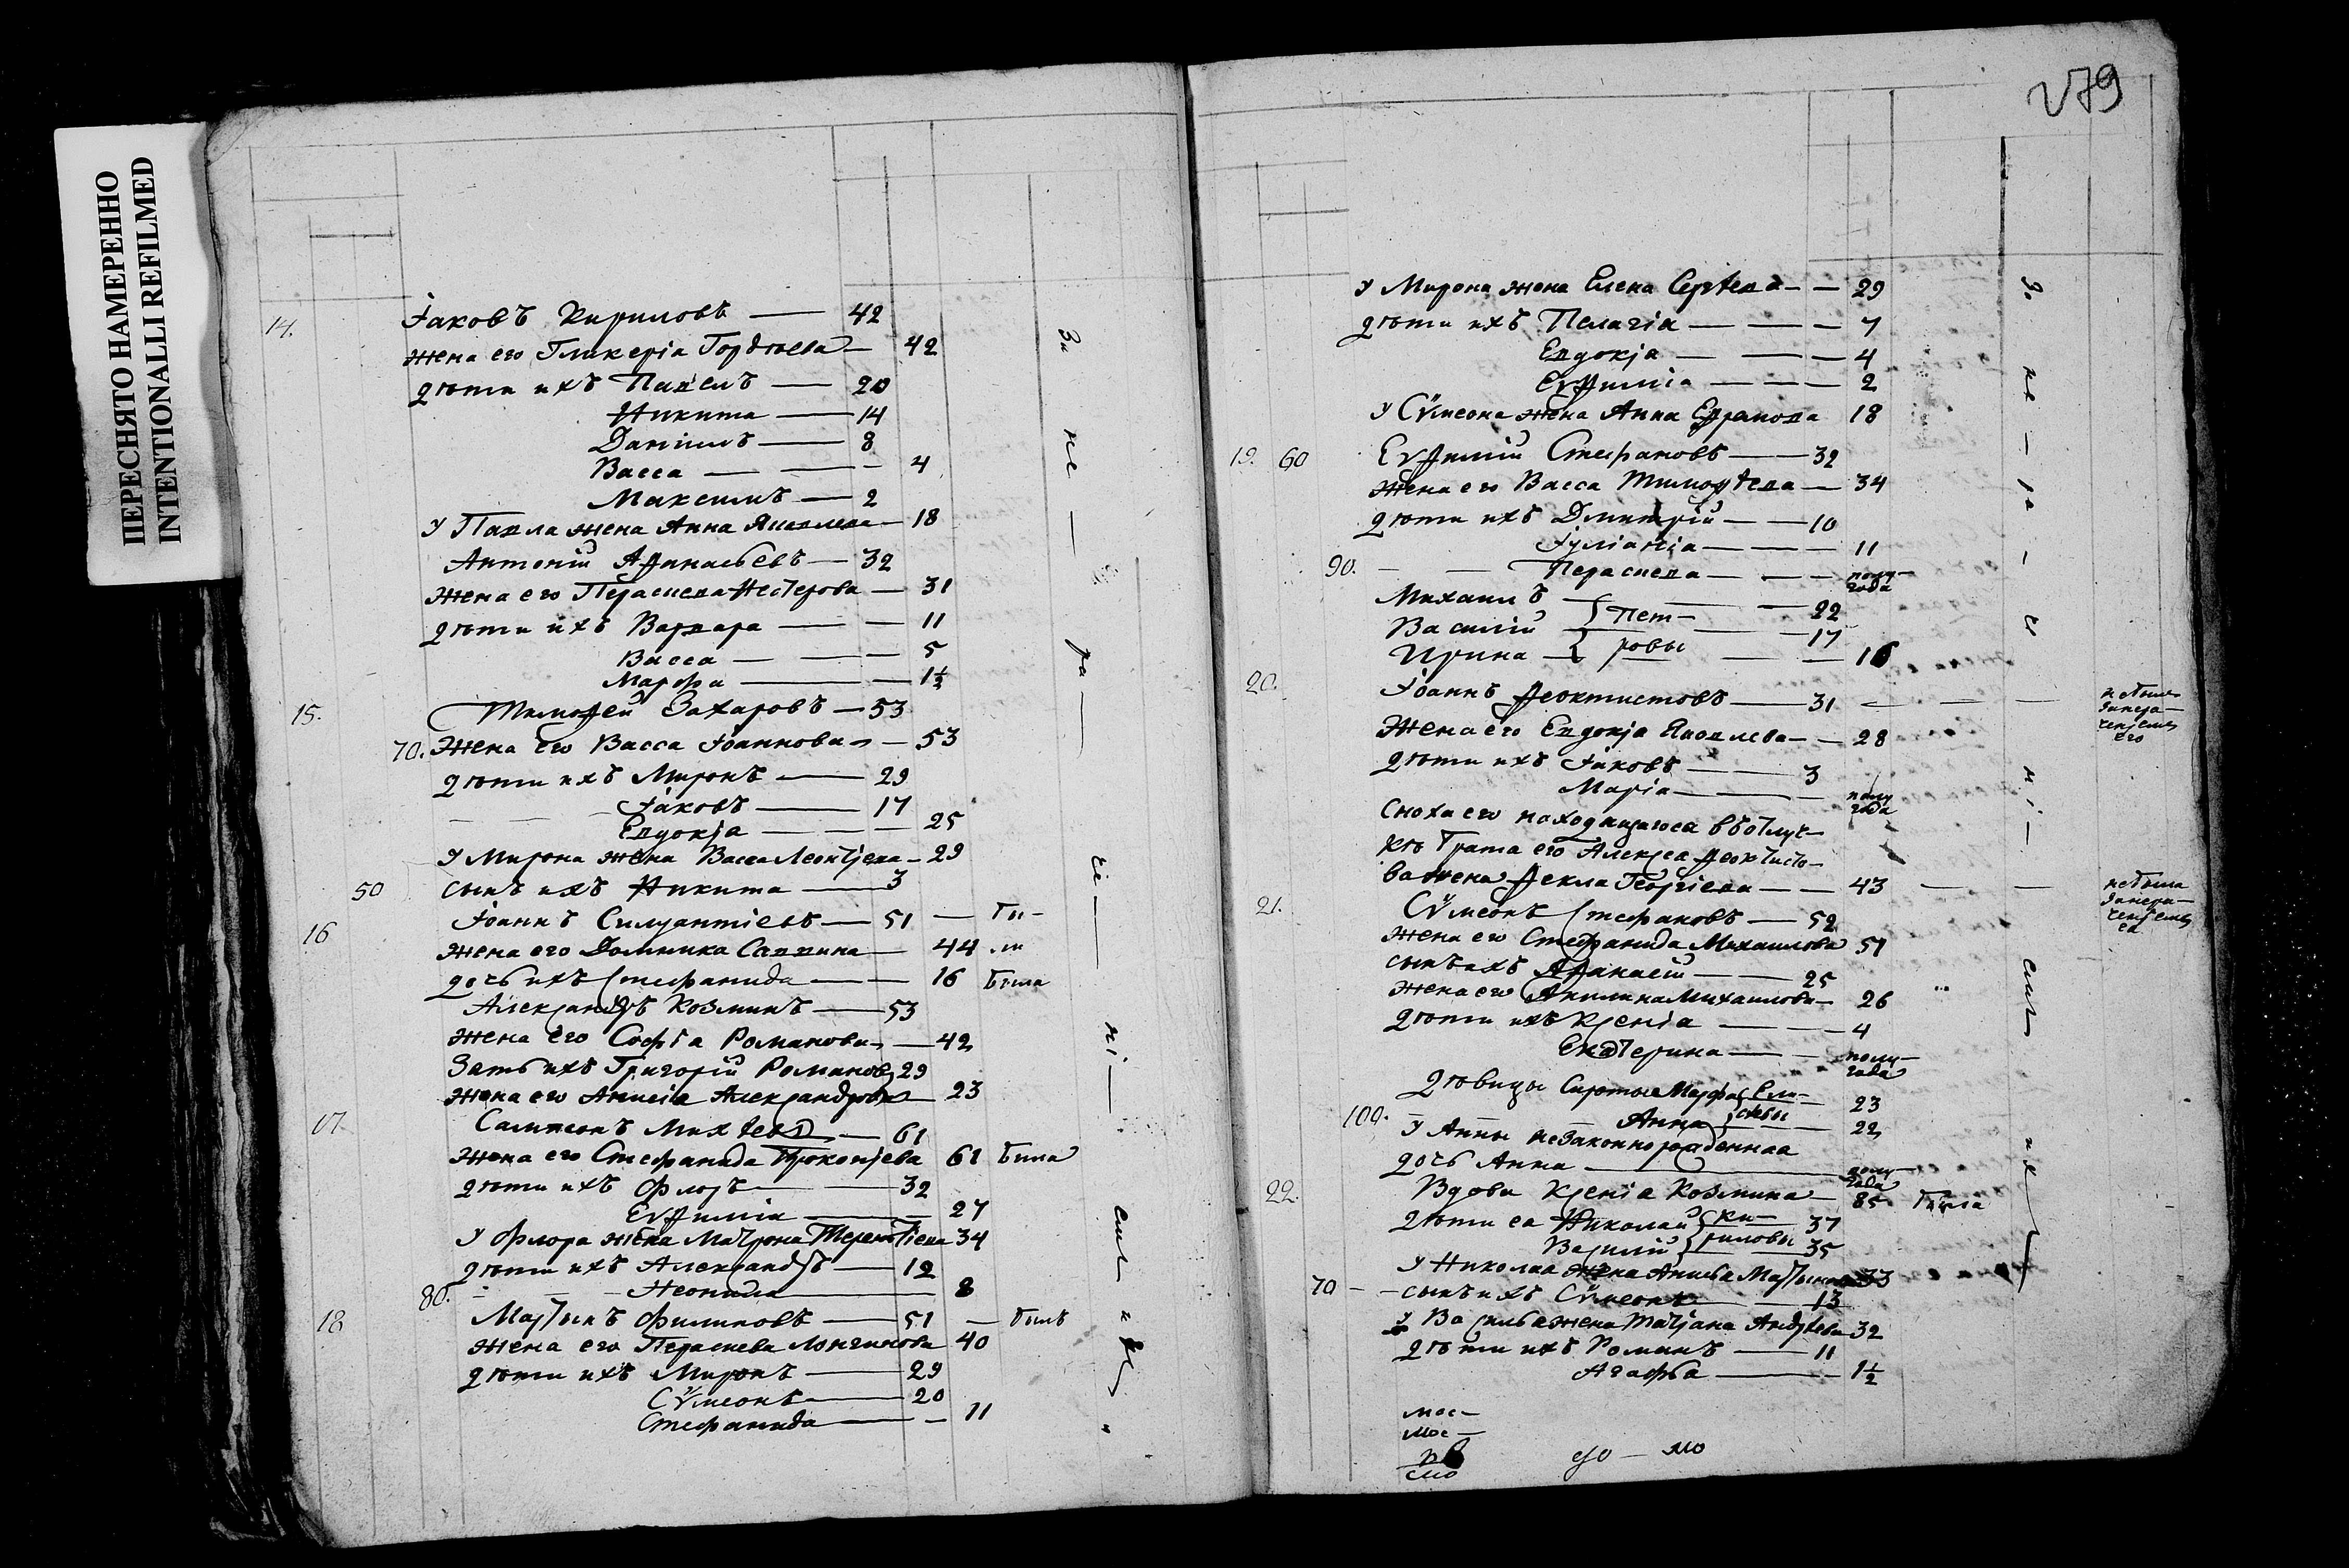 ПЕРЕСНЯТО НАМЕРЕННО
INTENTIONALLI REFILMED
14. Іаковъ Кириловъ — 42
жена его Гликерія Гордѣева — 42
дѣти ихъ Павелъ — 20
Никита — 14
Даніилъ — 8
Васса — 4
Максимъ — 2
У Павла жена Анна Яковлева — 18
Антоній Афанасьевъ — 32
жена его Параскева Нестерова — 31
дѣти ихъ Варвара — 11
Васса — 5
Марфа — 1½
15. Тимофей Захаровъ — 53
70. Жена его Васса Іоаннова — 53
дѣти ихъ Миронъ — 29
Іаковъ — 17
Евдокіа — 25
У Мирона жена Васса Леонтіева — 29
50 сынъ ихъ Никита — 3
16 Іоаннъ Силуантіевъ — 51 — Бы-
жена его Домника Саввина — 44 ли
дочь ихъ Стефанида — 16 была
Александръ Козминъ — 53
жена его Софіа Романова — 42
Зять ихъ Григорій Романовъ 29
жена его Анисіа Александрова — 23
17. Сампсонъ Михѣевъ — 61
жена его Стефанида Прокопіева 61 была
дѣти ихъ Флоръ — 32
Евфиміа — 27
У Флора жена Матрона Терентіева 34
дѣти ихъ Александръ — 12
80. Неонила — 8
18 Мартынъ Филиповъ — 51 — былъ
жена его Параскева Лонгинова 40
дѣти ихъ Миронъ — 29
Сѵмеонъ — 20
Стефанида — 11
За не — ра — че — ні — емъ ихъ
279
У Мирона жена Елена Сергѣева — 29
дѣти ихъ Пелагіа — 7
Евдокіа — 4
Евфиміа — 2
У Сѵмеона жена Анна 18
19. 60 Евфимій Стефановъ — 32
Жена его Васса Тимофѣева — 34
дѣти ихъ Димитрій — 10
Іуліаніа — 11
90. Параскева — полу-
года
Михаилъ — 22
Василій } Пет- — 17
Ирина } ровы — 16
20. Іоаннъ Феоктистовъ — 31 — не былъ
за нера-
ченіемъ
его
Жена его Евдокіа Яковлева — 28
дѣти ихъ Іаковъ — 3
Маріа — полу
года
Сноха его находящагося въ отлуч-
кѣ брата его Алексеа Феоктисто-
ва жена Фекла Георгіева — 43 — не была
за нера-
ченіемъ
еа
21. Сѵмеонъ Стефановъ — 52
жена его Стефанида Михаилова 51
сынъ ихъ Афанасій — 25
жена его Акилина Михаилова — 26
дѣти ихъ Ксеніа — 4
Екатерина — полу-
года
дѣвицы сироты Марфа 23
100. Анна 22
У Анны незаконнорожденнаа
дочь Анна — полу-
года
22. Вдова Ксеніа Козмина — 85 была
дѣти еа Николай } Ки- 37
Василій } риловы 35
У Николаа жена Анисьа Мартынова 33
70 — сынъ ихъ Сѵмеонъ — 13
У Василья жена Татіана Андреева 32
дѣти ихъ Романъ — 11
Агафьа — 1½
За не — ра — че — ні — емъ ихъ